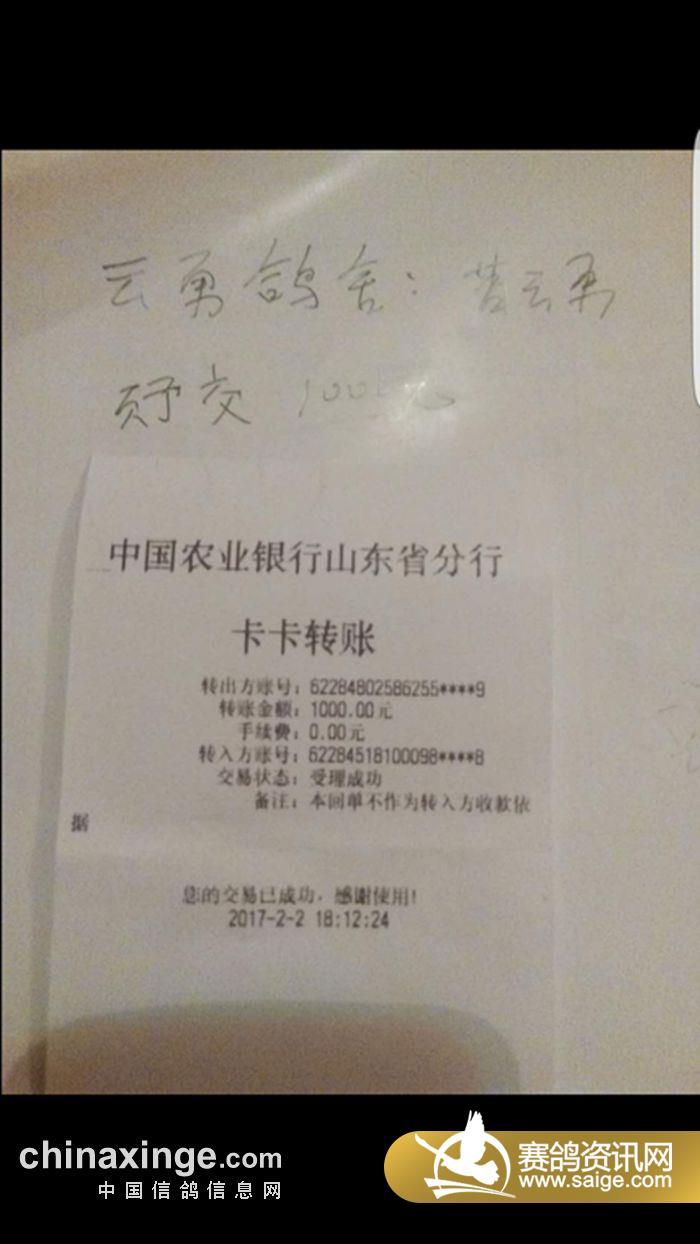 云勇鸽舍：黄云勇
预交 1000元
中国农业银行山东省分行
卡卡转账
转出方账号：62284802586255****9
转账金额：1000.00元
手续费：0.00元
转入方账号：62284518100098****8
交易状态：受理成功
备注：本回单不作为转入方收款依
据
您的交易已成功，感谢使用！
2017-2-2 18:12:24
chinaxinge.com
中国信鸽信息网
赛鸽资讯网
www.saige.com